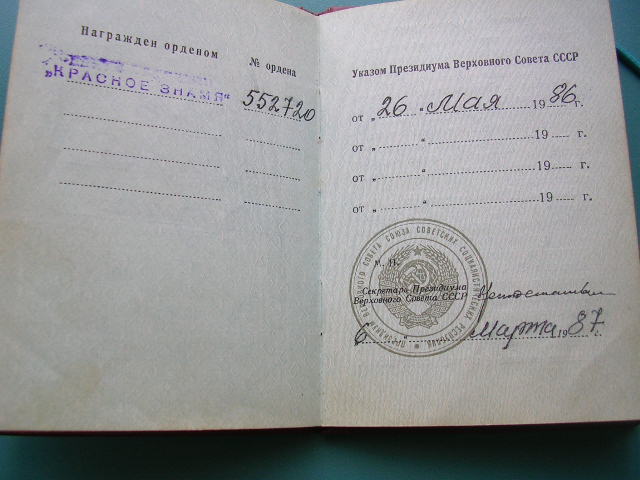 Награжден орденом
№ ордена
„КРАСНОЕ ЗНАМЯ“
552720
Указом Президиума Верховного Совета СССР
от „ 26 “ Мая 1986 г.
от „ “ 19 г.
от „ “ 19 г.
от „ “ 19 г.
ПРЕЗИДИУМ ВЕРХОВНОГО СОВЕТА СОЮЗА СОВЕТСКИХ СОЦИАЛИСТИЧЕСКИХ РЕСПУБЛИК
М. П.
Секретарь Президиума
Верховного Совета СССР
6 Марта 1987 г.